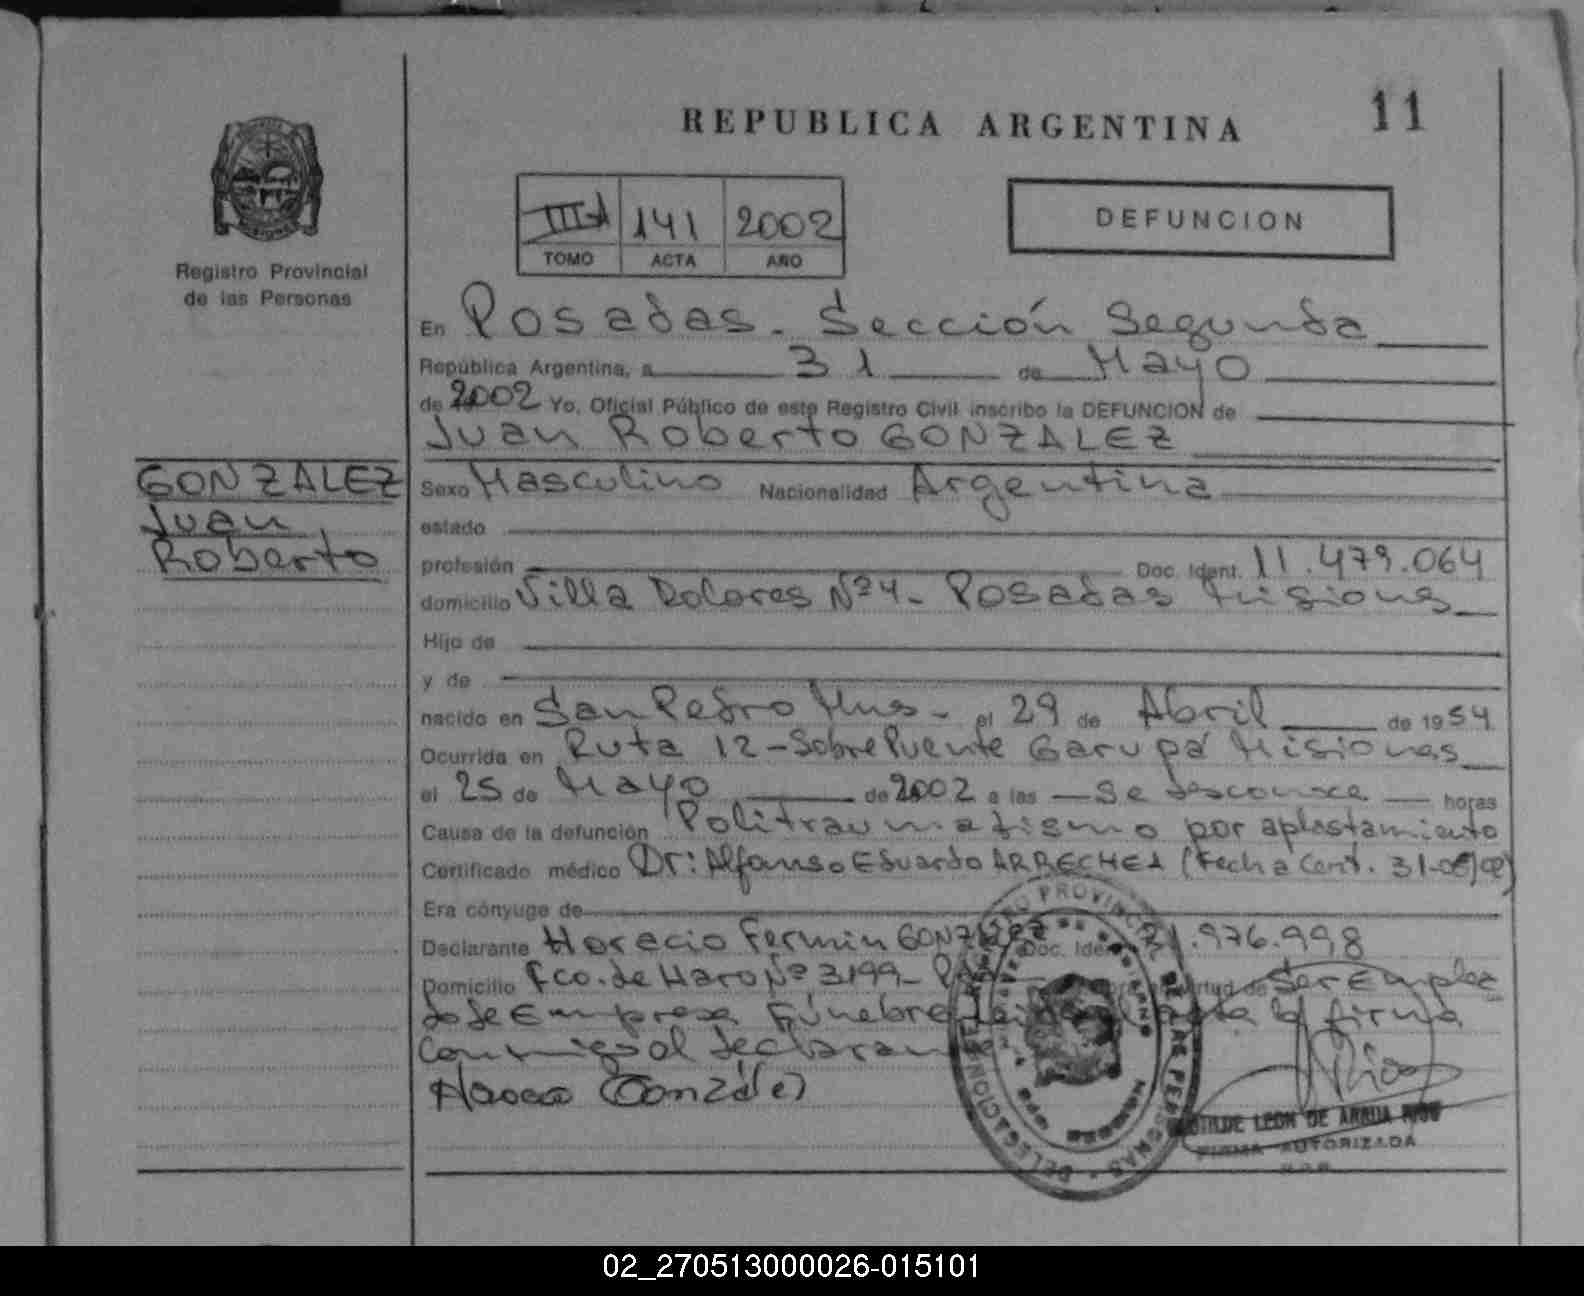 REPUBLICA ARGENTINA
11
III A 141 2002
TOMO ACTA AÑO
DEFUNCION
Registro Provincial
de las Personas
GONZALEZ
Juan
Roberto
En Posadas - Sección Segunda
República Argentina, a 31 de Mayo
de 2002 Yo, Oficial Público de este Registro Civil inscribo la DEFUNCION de
Juan Roberto GONZALEZ
Sexo Masculino Nacionalidad Argentina
estado
profesión Doc. Ident. 11.479.064
domicilio Villa Dolores Nº 4 - Posadas Misiones
Hijo de
y de
nacido en San Pedro Mnes - el 29 de Abril de 1954
Ocurrida en Ruta 12 - Sobre Puente Garupá Misiones
el 25 de Mayo de 2002 a las - Se desconoce - horas
Causa de la defunción Politraumatismo por aplastamiento
Certificado médico Dr: Alfonso Eduardo ARRECHEA (Fecha Cert. 31-05/02)
Era cónyuge de
Declarante Horacio Fermin GONZALEZ Doc. Ident. .976.998
Domicilio Fco. de Haro Nº 3199 - virtud de Ser Emplea
do de Empresa Fúnebre la firma
Conmigo el declarante
Gonzalez
REGISTRO PROVINCIAL DE LAS PERSONAS - DELEGACION
LEON DE ARRUA RIOS
FIRMA AUTORIZADA
02_270513000026-015101